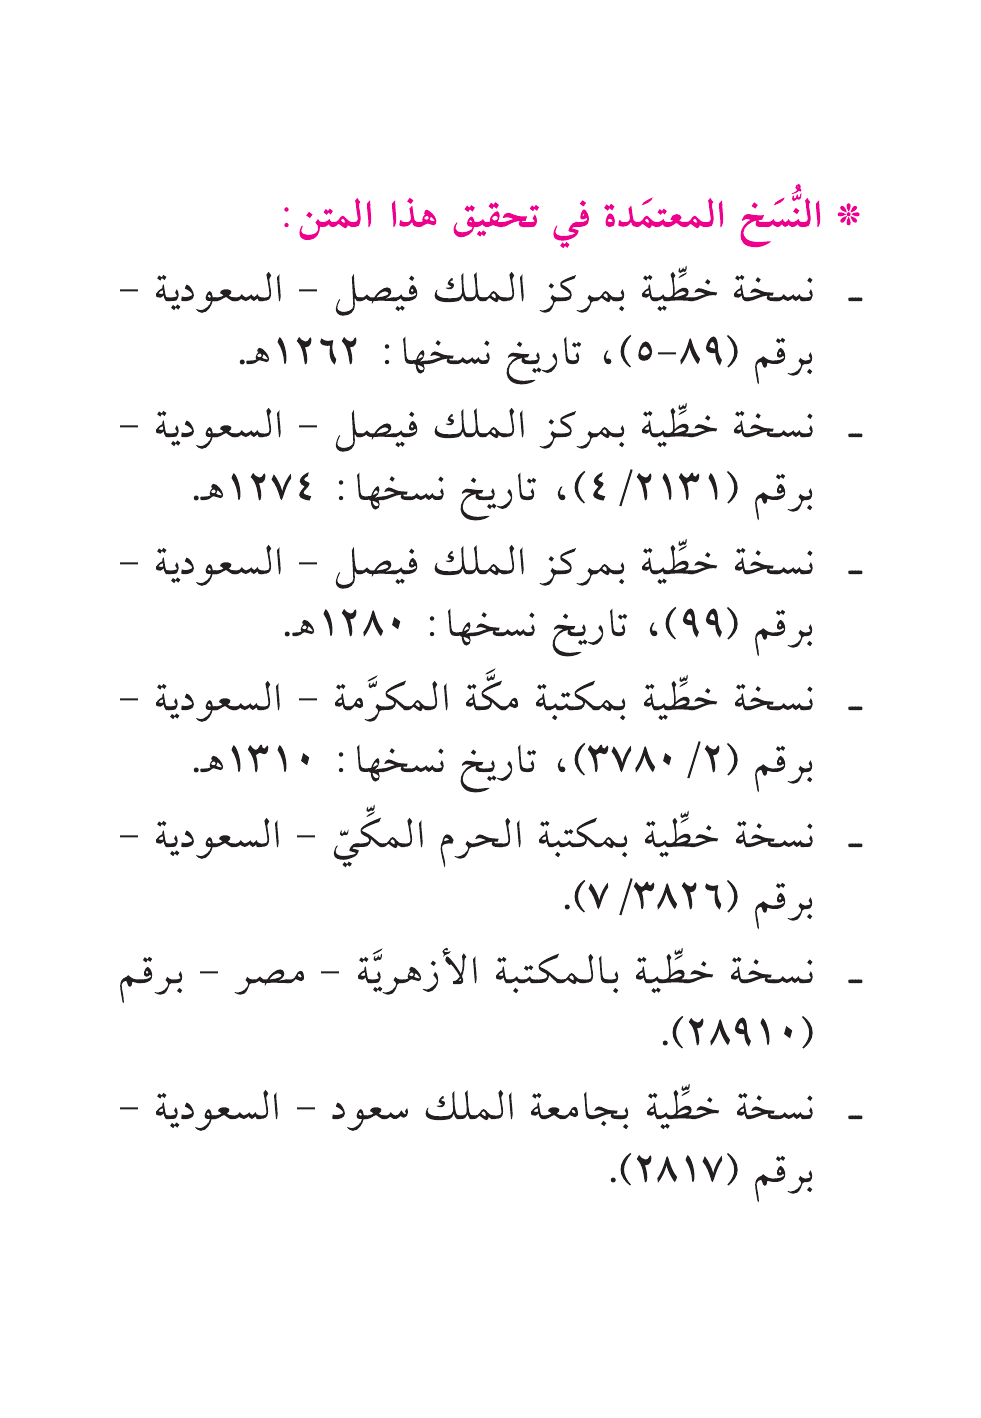 ❊ النُّسَخ المعتمَدة في تحقيق هذا المتن:
ـ نسخة خطِّية بمركز الملك فيصل – السعودية –
برقم (٨٩-٥)، تاريخ نسخها: ١٢٦٢هـ.
ـ نسخة خطِّية بمركز الملك فيصل – السعودية –
برقم (٢١٣١/ ٤)، تاريخ نسخها: ١٢٧٤هـ.
ـ نسخة خطِّية بمركز الملك فيصل – السعودية –
برقم (٩٩)، تاريخ نسخها: ١٢٨٠هـ.
ـ نسخة خطِّية بمكتبة مكَّة المكرَّمة – السعودية –
برقم (٢/ ٣٧٨٠)، تاريخ نسخها: ١٣١٠هـ.
ـ نسخة خطِّية بمكتبة الحرم المكِّيّ – السعودية –
برقم (٣٨٢٦/ ٧).
ـ نسخة خطِّية بالمكتبة الأزهريَّة – مصر – برقم
(٢٨٩١٠).
ـ نسخة خطِّية بجامعة الملك سعود – السعودية –
برقم (٢٨١٧).